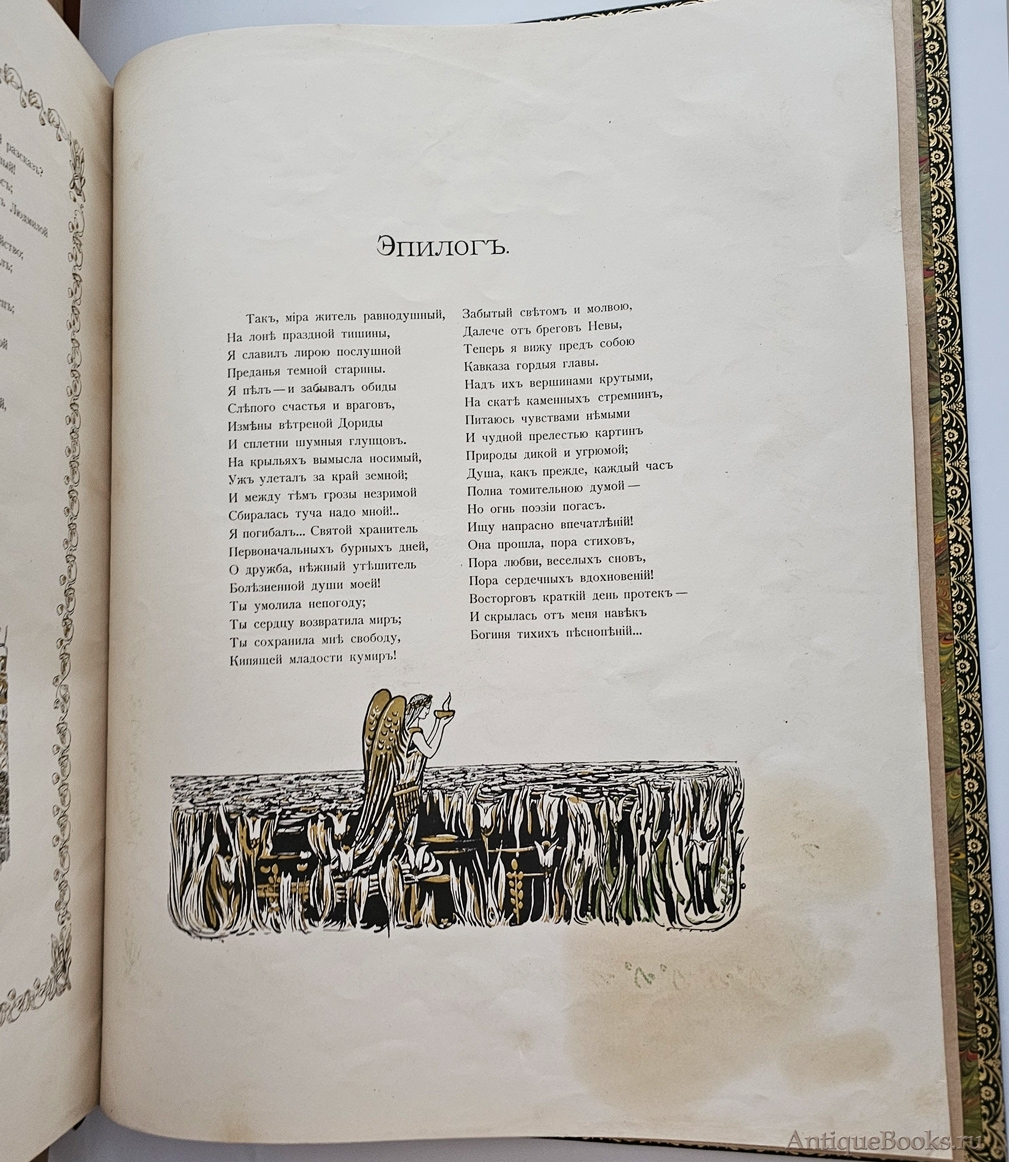 й разсказъ?
ный!
ъ Людмилой
Эпилогъ.
Такъ, міра житель равнодушный,
На лонѣ праздной тишины,
Я славилъ лирою послушной
Преданья темной старины.
Я пѣлъ — и забывалъ обиды
Слѣпого счастья и враговъ,
Измѣны вѣтреной Дориды
И сплетни шумныя глупцовъ.
На крыльяхъ вымысла носимый,
Умъ улеталъ за край земной;
И между тѣмъ грозы незримой
Сбиралась туча надо мной!..
Я погибалъ... Святой хранитель
Первоначальныхъ бурныхъ дней,
О дружба, нѣжный утѣшитель
Болѣзненной души моей!
Ты умолила непогоду;
Ты сердцу возвратила миръ;
Ты сохранила мнѣ свободу,
Кипящей младости кумиръ!
Забытый свѣтомъ и молвою,
Далече отъ бреговъ Невы,
Теперь я вижу предъ собою
Кавказа гордыя главы.
Надъ ихъ вершинами крутыми,
На скатѣ каменныхъ стремнинъ,
Питаюсь чувствами нѣмыми
И чудной прелестью картинъ
Природы дикой и угрюмой;
Душа, какъ прежде, каждый часъ
Полна томительною думой —
Но огнь поэзіи погасъ.
Ищу напрасно впечатлѣній!
Она прошла, пора стиховъ,
Пора любви, веселыхъ сновъ,
Пора сердечныхъ вдохновеній!
Восторговъ краткій день протекъ —
И скрылась отъ меня навѣкъ
Богиня тихихъ пѣснопѣній...
AntiqueBooks.ru